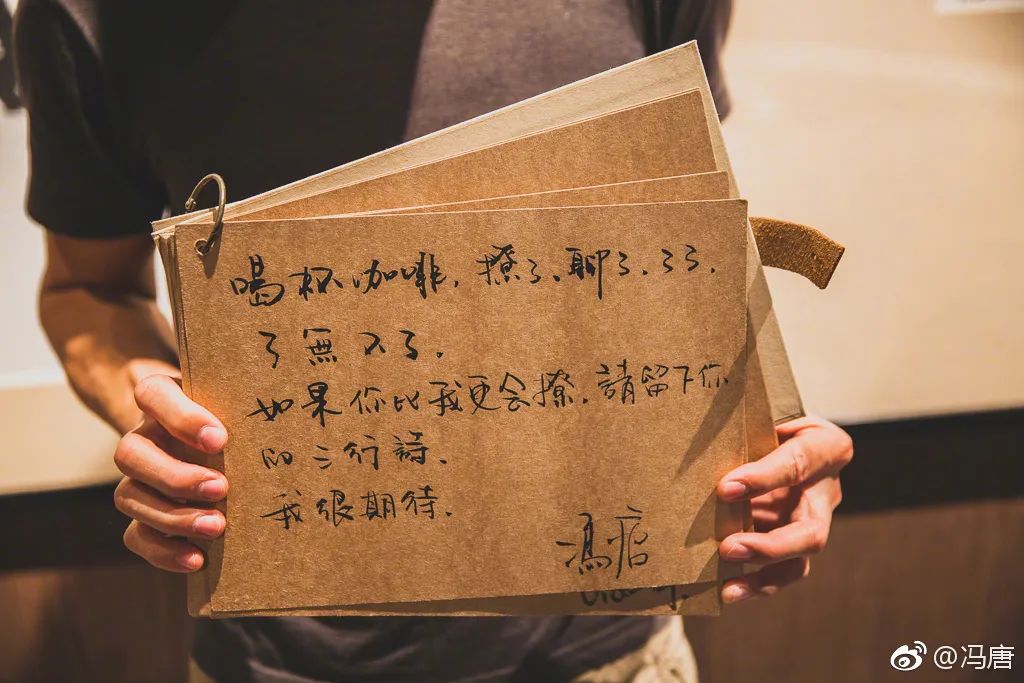 喝杯咖啡,撩了、聊了、了了,
了無不了.
如果你比我更会撩,請留下你
的三行詩.
我很期待.
馮唐
@冯唐